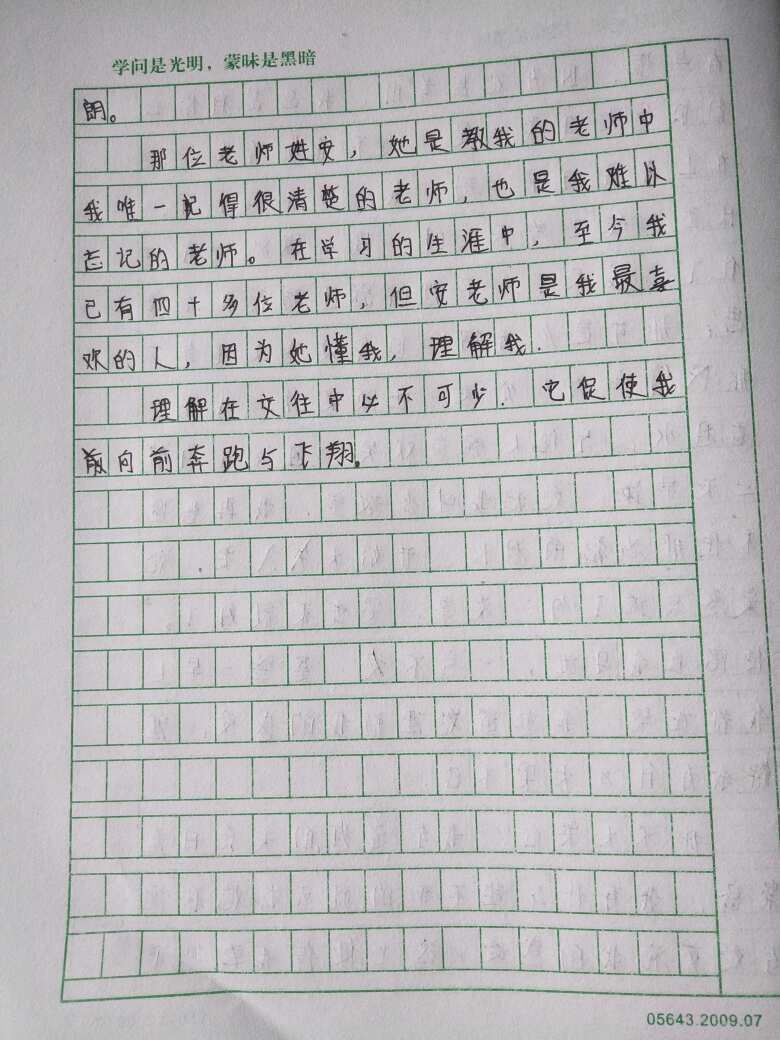 学问是光明，蒙昧是黑暗
朗。
那位老师姓安，她是教我的老师中
我唯一记得很清楚的老师，也是我难以
忘记的老师。在学习的生涯中，至今我
已有四十多位老师，但安老师是我最喜
欢的人，因为她懂我，理解我.
理解在交往中必不可少. 它促使我
向前奔跑与飞翔。
05643.2009.07